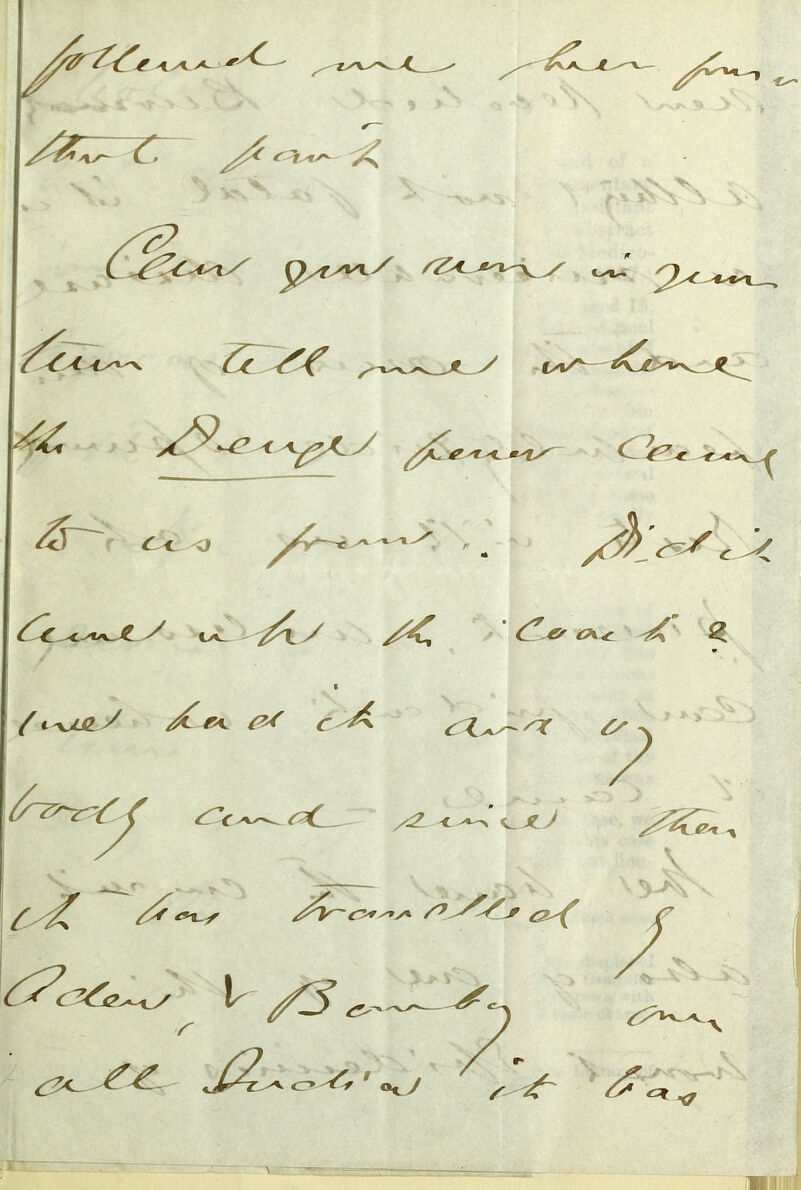 followed me here from
that part
Can you now in your
turn tell me where
the Denge fever came
to us from. Did it
come up the coast?
we had it
body and since then
it has travelled by
Aden, & Bombay over
all India it has